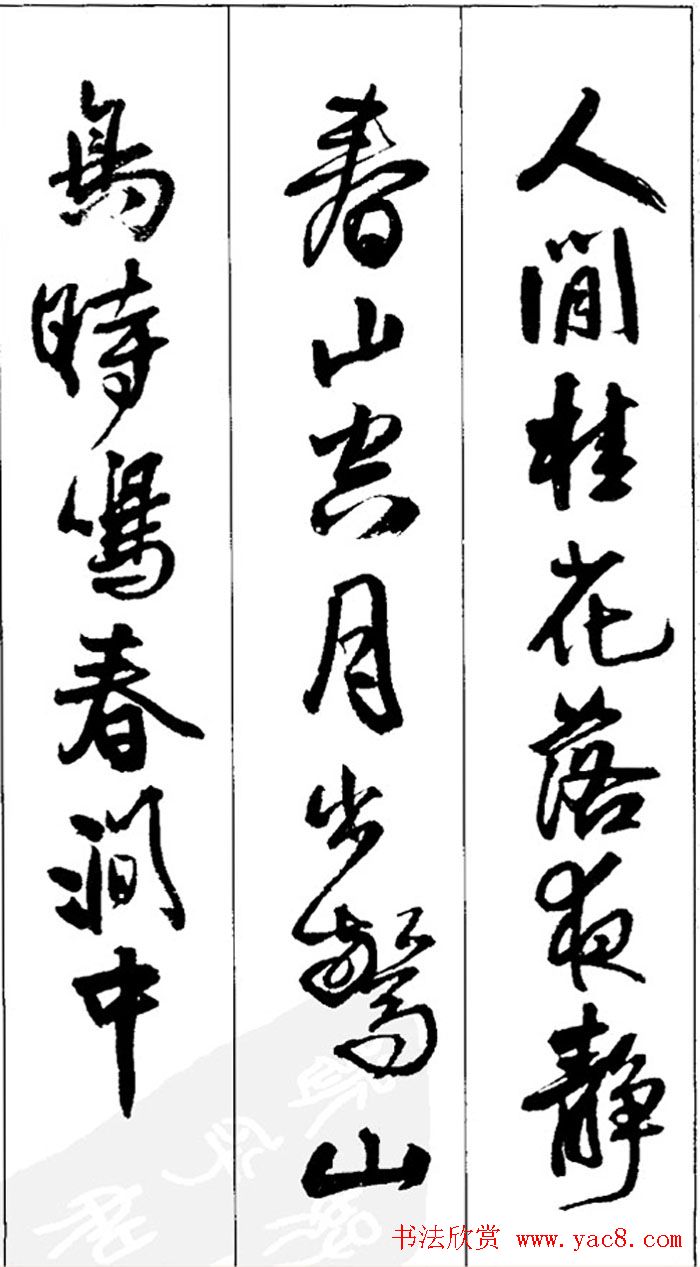 人閒桂花落夜靜
春山空月出驚山
鳥時鳴春澗中
书法欣赏 www.yac8.com